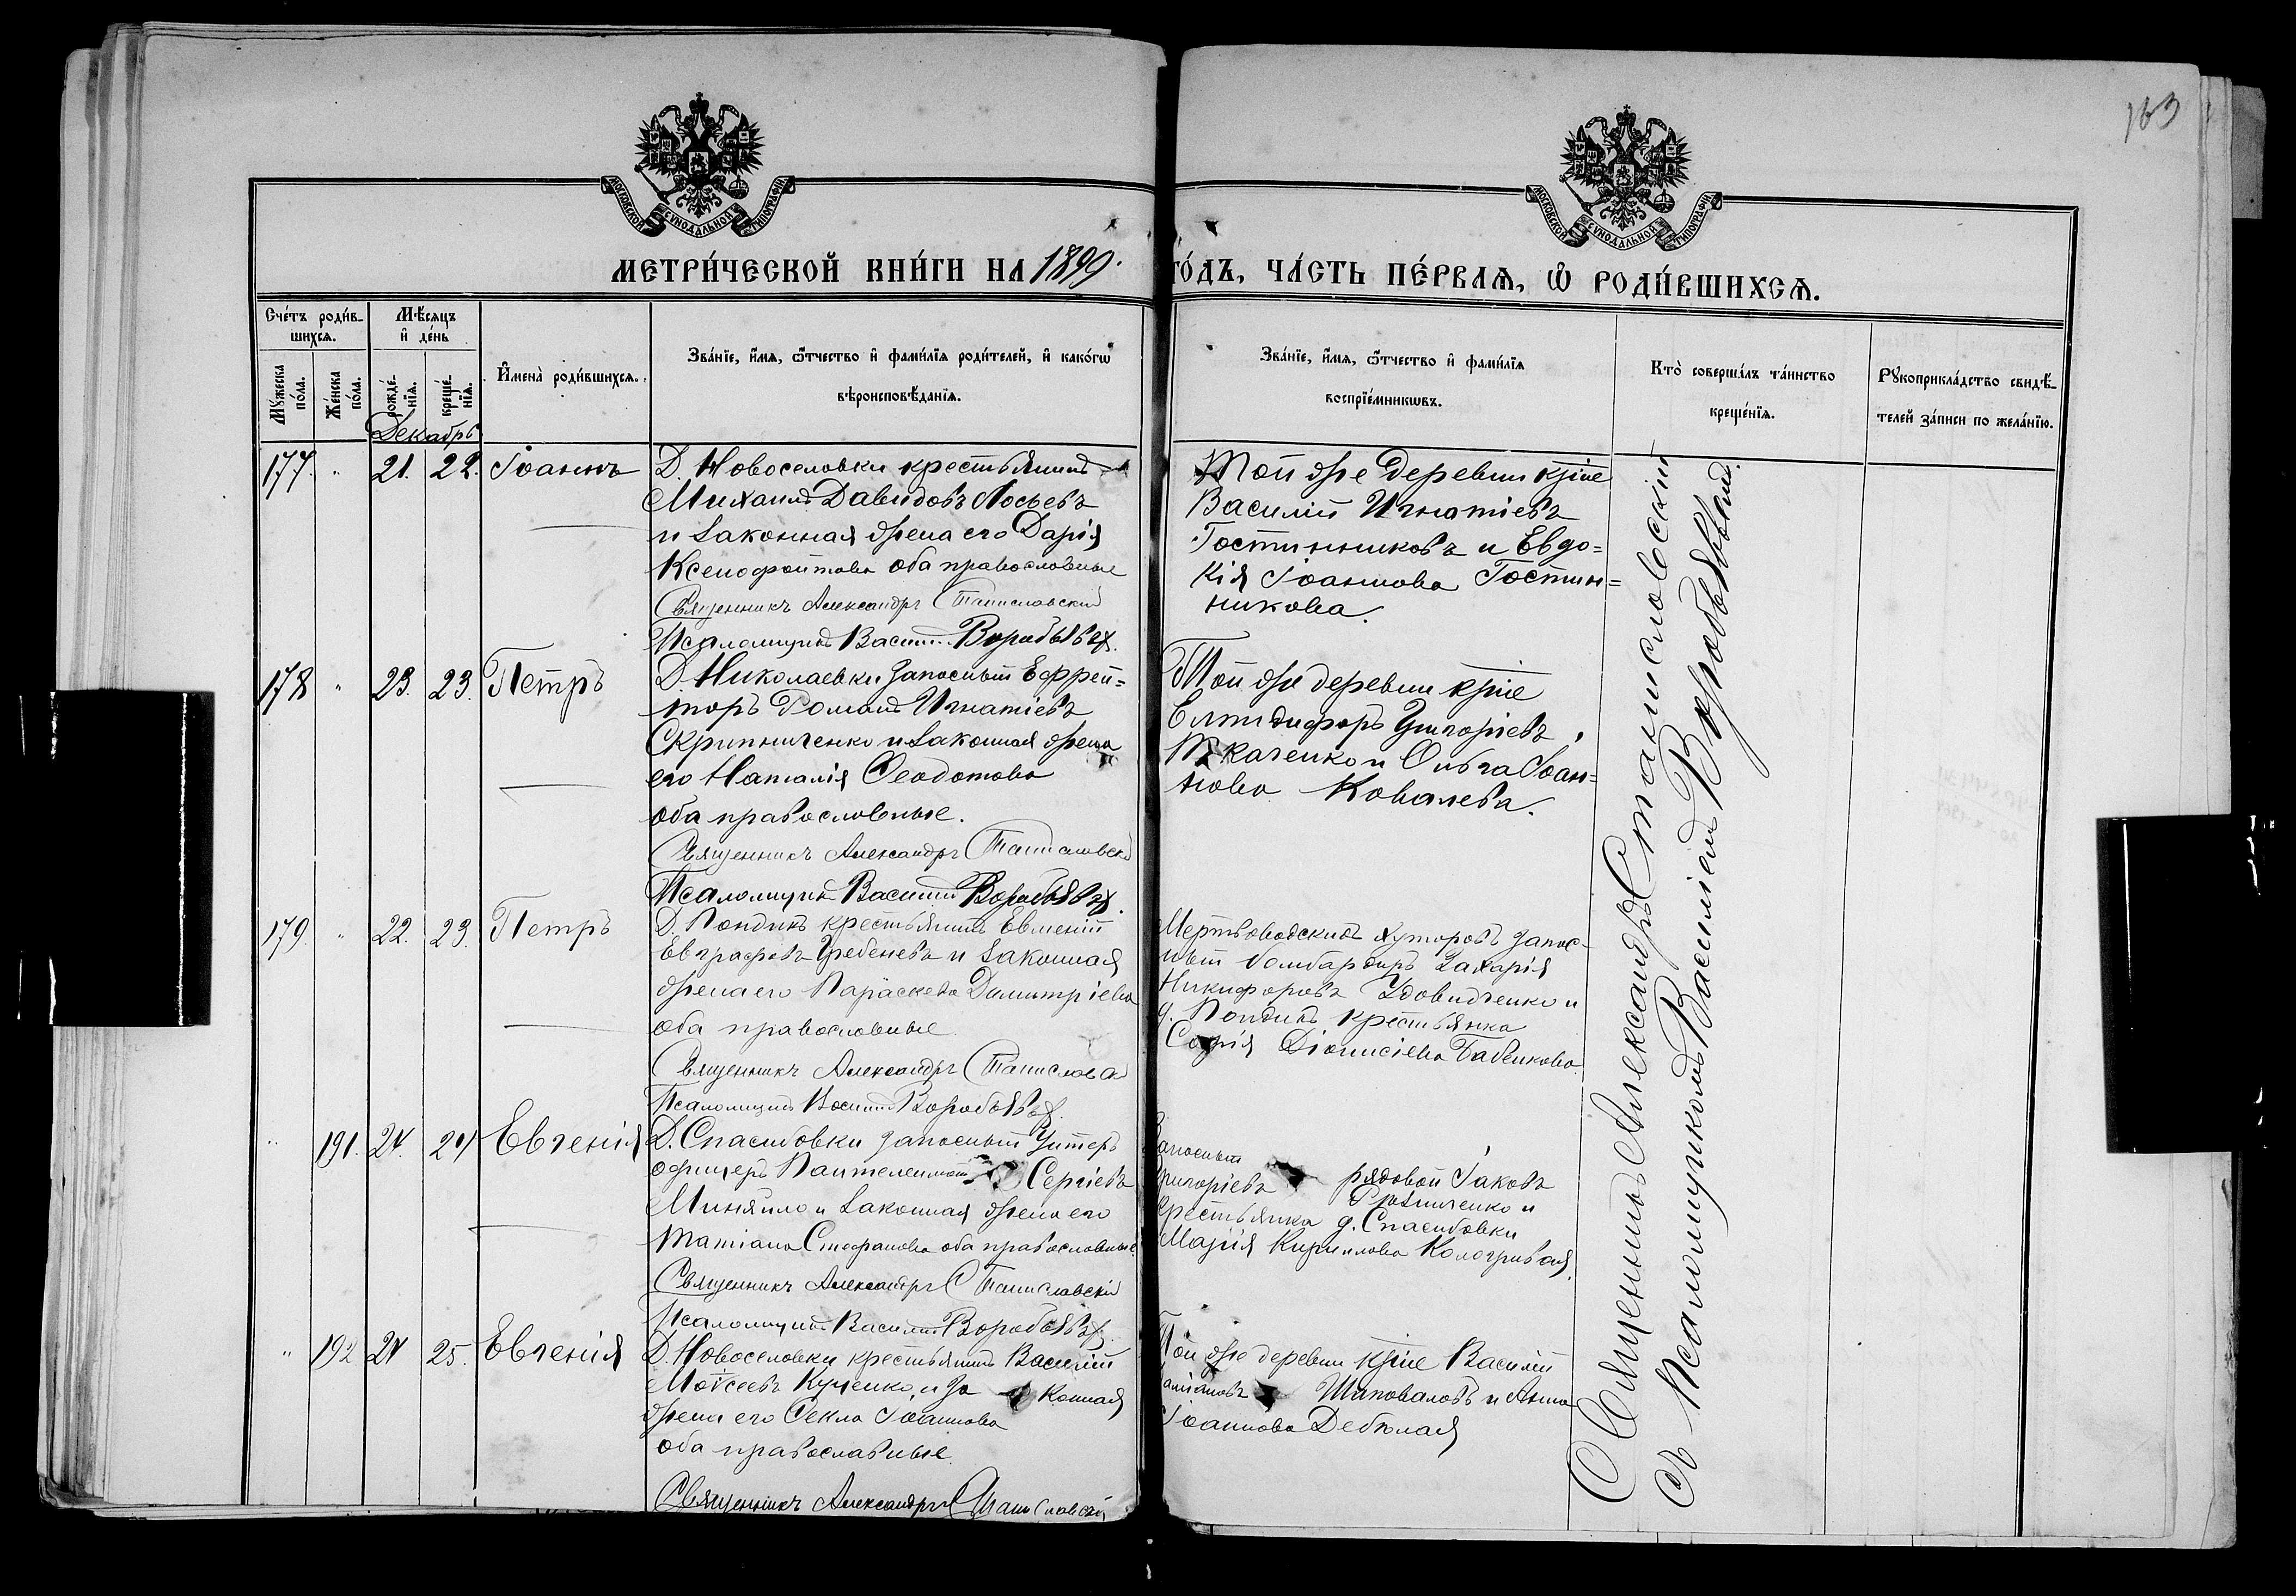 163
МОСКОВСКОЙ СѴНОДАЛЬНОЙ ТИПОГРАФІИ
МОСКОВСКОЙ СѴНОДАЛЬНОЙ ТИПОГРАФІИ
МЕТРИ́ЧЕСКОЙ КНИ́ГИ НА 1899.
ГО́ДЪ, ЧА́СТЬ ПЕ́РВАѦ, Ѽ РОДИ́ВШИХСѦ.
Сче́тъ роди́в-
шихсѧ.
Мꙋ́жеска
по́ла.
Же́нска
по́ла.
Мѣ́сѧцъ
и҆ де́нь
рожде́-
нїѧ.
креще́-
нїѧ.
Декабрь
И҆мена̀ роди́вшихсѧ.
Зва́нїе, и҆́мѧ, ѻ҆́тчество и҆ фами́лїѧ роди́телей, и҆ како́гѡ
вѣроисповѣ́данїѧ.
Зва́нїе, и҆́мѧ, ѻ҆́тчество и҆ фами́лїѧ
воспрїе́мникѡвъ.
Кто̀ соверша́лъ та́инство
креще́нїѧ.
Рꙋкоприкла́дство свидѣ́-
телей за́писи по жела́нїю.
177. " 21. 22. Іоаннъ
Д. Новоселовки крестьянинъ
Михаилъ Давидовъ Лосьевъ
и законная жена его Дарія
Ксенофонтова оба православные
Священникъ Александръ Станиславскій
Псаломщикъ Василій Воробьевъ.
Той же деревни кр̃не
Василій Игнатіевъ
Гостинниковъ и Евдо=
кія Іоаннова Гостин=
никова.
178 " 23. 23. Петръ
Д. Николаевки запасный Ефрей=
торъ Романъ Игнатіевъ
Скрипниченко и законная жена
его Наталія Ѳеодотова
оба православные.
Священникъ Александръ Станиславскій
Псаломщикъ Василій Воробьевъ.
Той же деревни кр̃не
Елпидифоръ Григоріевъ
Ткаченко и Ольга Іоан=
нова Ковалева.
179. " 22. 23. Петръ
Д. крестьянинъ Евменій
Евграфовъ Гребеневъ и законная
жена его Параскева Димитріева
оба православные
Священникъ Александръ Станислав
Псаломщикъ Василій Воробьевъ.
Мертвоводскихъ хуторовъ запас-
ный бомбардиръ Захарія
Никифоровъ Удовидченко и
д. крестьянка
Софія Діонисіева Бабенкова.
" 191. 24. 24 Евгенія
Д. Спасибовки запасный Унтеръ
офицеръ Пантелеимонъ Сергіевъ
Миняйло и законная жена его
Татіана Стефанова оба православные.
Священникъ Александръ Станиславскій
Псаломщикъ Василій Воробьевъ.
Запасный
рядовой Іаковъ
Григоріевъ и
крестьянка д. Спасибовки
Марія Кириллова Кологривая.
" 192 24 25. Евгенія
Д. Новоселовки крестьянинъ Василій
Моѵсеевъ Куценко, и за конная
жена его Ѳекла Іоаннова
оба православные.
Священникъ Александръ Станиславскій
Той же деревни кр̃не Василій
Шаповаловъ и Анна
Іоаннова Дебелая
Священникъ Александръ Станиславскій
съ Псаломщикомъ Василіемъ Воробьевымъ.